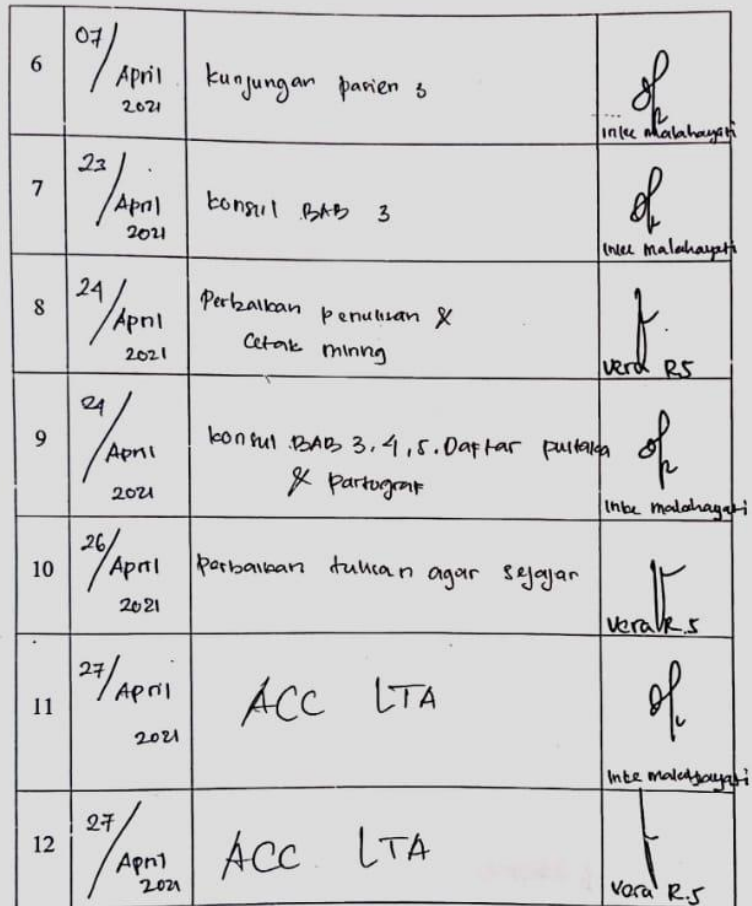 6
07/
April
2021
kunjungan pasien 3
Inke malahayati
7
23/
April
2021
konsul BAB 3
Inke malahayati
8
24/
April
2021
Perbaikan penulisan &
Cetak miring
Vera R.S
9
24/
April
2021
konsul BAB 3, 4, 5. Daftar pustaka
& partograf
Inke malahayati
10
26/
April
2021
perbaikan tulisan agar sejajar
Vera R.S
11
27/
April
2021
ACC LTA
Inke malahayati
12
27/
April
2021
ACC LTA
Vera R.S